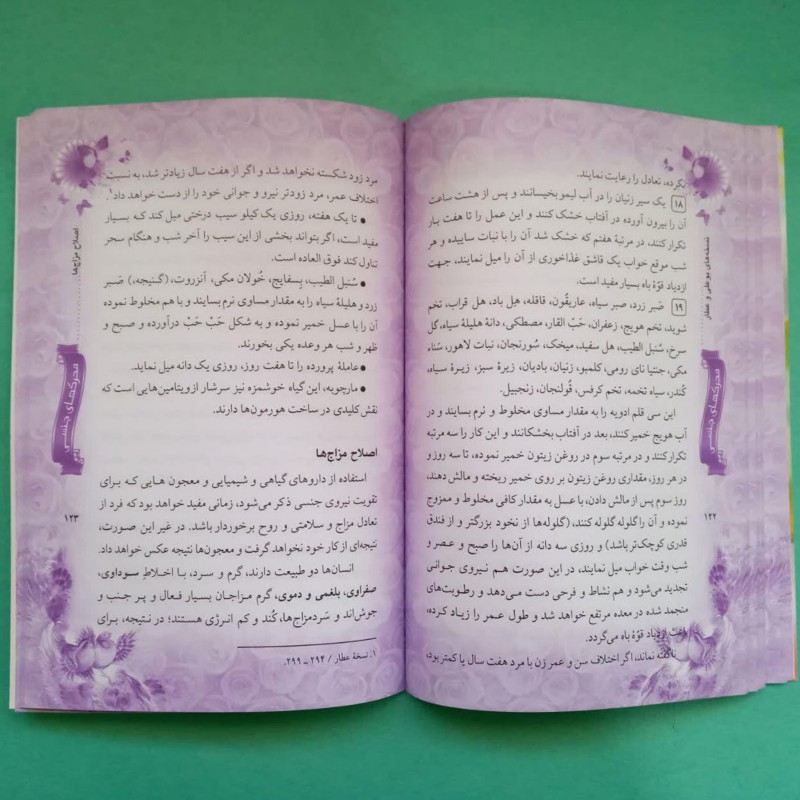 نکرده، تعادل را رعایت نمایند.
۱۸ یک سیر زنیان را در آب لیمو بخیسانند و پس از هشت ساعت
آن را بیرون آورده در آفتاب خشک کنند و این عمل را تا هفت بار
تکرار کنند، در مرتبهٔ هفتم که خشک شد آن را با نبات ساییده و هر
شب موقع خواب یک قاشق غذاخوری از آن را میل نمایند، جهت
ازدیاد قوّهٔ باه بسیار مفید است.
۱۹ صَبر زرد، صبر سیاه، عاریقون، قاقله، هِل باد، هل قراب، تخم
شوید، تخم هویج، زعفران، حَبّ القار، مصطکی، دانهٔ هلیلهٔ سیاه، گل
سرخ، سُنبل الطیب، هل سفید، میخک، سورنجان، نبات لاهور، سَناء
مکی، جنتیا نای رومی، کلمبو، زنیان، بادیان، زیرهٔ سبز، زیرهٔ سیاه،
کُندر، سیاه تخمه، تخم کرفس، قُولنجان، زنجبیل.
این سی قلم ادویه را به مقدار مساوی مخلوط و نرم بسایند و در
آب هویج خمیر کنند، بعد در آفتاب بخشکانند و این کار را سه مرتبه
تکرار کنند و در مرتبه سوم در روغن زیتون خمیر نموده، تا سه روز و
در هر روز، مقداری روغن زیتون بر روی خمیر ریخته و مالش دهند،
روز سوم پس از مالش دادن، با عسل به مقدار کافی مخلوط و ممزوج
نموده و آن را گلوله گلوله کنند، (گلوله‌ها از نخود بزرگتر و از فندق
قدری کوچک‌تر باشد) و روزی سه دانه از آن‌ها را صبح و عصر و
شب وقت خواب میل نمایند، در این صورت هم نیروی جوانی
تجدید می‌شود و هم نشاط و فرحی دست می‌دهد و رطوبت‌های
منجمد شده در معده مرتفع خواهد شد و طول عمر را زیاد کرده،
باعث ازدیاد قوّهٔ باه می‌گردد.
ناگفته نماند، اگر اختلاف سن و عمر زن با مرد هفت سال یا کمتر بود،
نسخه‌های بوعلی و عطار
محرکهای جنسی
۱۲۲
مرد زود شکسته نخواهد شد و اگر از هفت سال زیادتر شد، به نسبت
اختلاف عمر، مرد زودتر نیرو و جوانی خود را از دست خواهد داد.۱
● تا یک هفته، روزی یک کیلو سیب درختی میل کند که بسیار
مفید است، اگر بتواند بخشی از این سیب را آخر شب و هنگام سحر
تناول کند فوق العاده است.
● سُنبل الطیب، بِسفایج، خُولان مکی، آنزروت، (گنیجه،) صَبر
زرد و هلیلهٔ سیاه را به مقدار مساوی نرم بسایند و با هم مخلوط نموده
آن را با عسل خمیر نموده و به شکل حَبْ حَبْ درآورده و صبح و
ظهر و شب هر وعده یکی بخورند.
● عاملهٔ پرورده را تا هفت روز، روزی یک دانه میل نماید.
● مارچوبه، این گیاه خوشمزه نیز سرشار از ویتامین‌هایی است که
نقش کلیدی در ساخت هورمون‌ها دارند.
اصلاح مزاج‌ها
استفاده از داروهای گیاهی و شیمیایی و معجون هایی که برای
تقویت نیروی جنسی ذکر می‌شود، زمانی مفید خواهد بود که فرد از
تعادل مزاج و سلامتی و روح برخوردار باشد. در غیر این صورت،
نتیجه‌ای از کار خود نخواهد گرفت و معجون‌ها نتیجه عکس خواهد داد.
انسان‌ها دو طبیعت دارند، گرم و سرد، با اخلاطِ سوداوی،
صفراوی، بلغمی و دموی، گرم مزاجان بسیار فعال و پر جنب و
جوش‌اند و سَردمزاج‌ها، کُند و کم انرژی هستند؛ در نتیجه، برای
۱. نسخهٔ عطار / ۲۹۴ - ۲۹۹.
اصلاح مزاج‌ها
محرکهای جنسی
۱۲۳